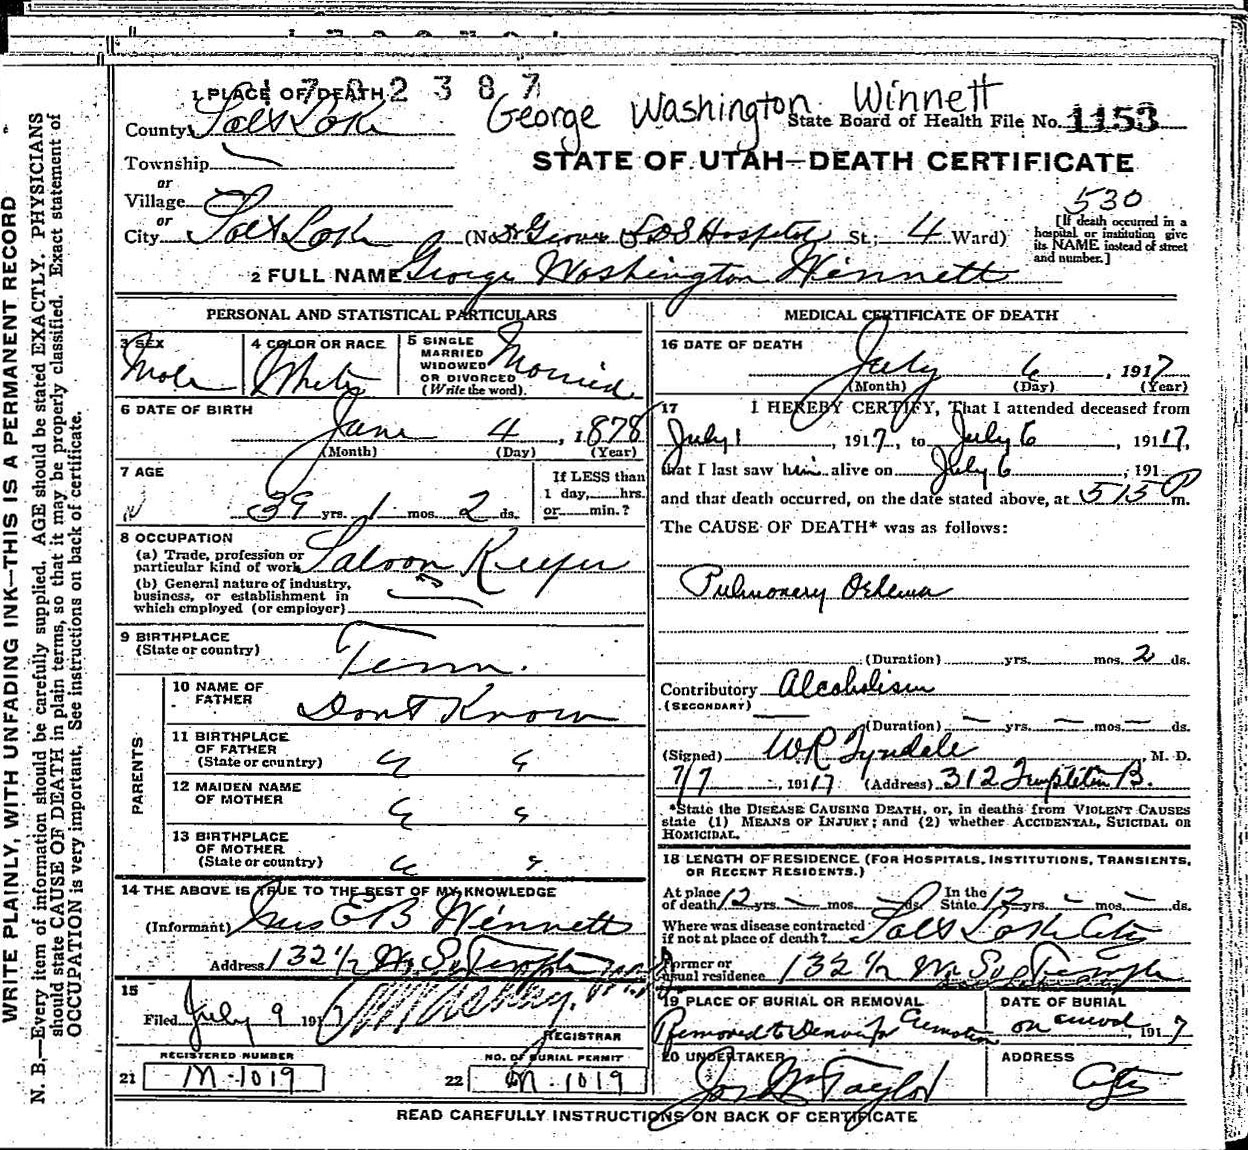 1702387
1 PLACE OF DEATH
George Washington Winnett
County Salt Lake
State Board of Health File No. 1153
Township
STATE OF UTAH—DEATH CERTIFICATE
or
Village
530
or
City Salt Lake (No. Dr Groves LDS Hospital St; 4 Ward)
[If death occurred in a
hospital or institution give
its NAME instead of street
and number.]
2 FULL NAME George Washington Winnett
PERSONAL AND STATISTICAL PARTICULARS
3 SEX
Male
4 COLOR OR RACE
White
5 SINGLE
MARRIED
WIDOWED
OR DIVORCED
(Write the word).
Married
6 DATE OF BIRTH
June 4, 1878
(Month) (Day) (Year)
7 AGE
39 yrs. 1 mos. 2 ds.
If LESS than
1 day, hrs.
or min.?
8 OCCUPATION
(a) Trade, profession or
particular kind of work Saloon Keeper
(b) General nature of industry,
business, or establishment in
which employed (or employer)
9 BIRTHPLACE
(State or country)
Tenn.
PARENTS
10 NAME OF
FATHER
Dont Know
11 BIRTHPLACE
OF FATHER
(State or country) " "
12 MAIDEN NAME
OF MOTHER " "
13 BIRTHPLACE
OF MOTHER
(State or country) " "
14 THE ABOVE IS TRUE TO THE BEST OF MY KNOWLEDGE
(Informant) E B Winnett
Address 132 1/2 W So Temple
15
Filed July 9 1917
REGISTRAR
REGISTERED NUMBER
21 M-1019
NO. OF BURIAL PERMIT
22 M-1019
MEDICAL CERTIFICATE OF DEATH
16 DATE OF DEATH
July 6, 1917
(Month) (Day) (Year)
17 I HEREBY CERTIFY, That I attended deceased from
July 1, 1917, to July 6, 191 17,
that I last saw him alive on July 6, 191
and that death occurred, on the date stated above, at 515 P m.
The CAUSE OF DEATH* was as follows:
Pulmonary Oedema
(Duration) yrs. mos. 2 ds.
Contributory Alcoholism
(SECONDARY)
(Duration) — yrs. — mos. — ds.
(Signed) W R Tyndale M. D.
7/7, 191 17 (Address) 312 Templeton B.
*State the DISEASE CAUSING DEATH, or, in deaths from VIOLENT CAUSES
state (1) MEANS OF INJURY; and (2) whether ACCIDENTAL, SUICIDAL OR
HOMICIDAL.
18 LENGTH OF RESIDENCE (FOR HOSPITALS, INSTITUTIONS, TRANSIENTS,
OR RECENT RESIDENTS.)
At place
of death 12 yrs. — mos. — ds.
In the
State 12 yrs. — mos. — ds.
Where was disease contracted
if not at place of death? Salt Lake City
Former or
usual residence 132 1/2 W So Temple
19 PLACE OF BURIAL OR REMOVAL
Removed to Denver for Cremation
DATE OF BURIAL
on arrival, 1917
20 UNDERTAKER
Jos Wm Taylor
ADDRESS
City
READ CAREFULLY INSTRUCTIONS ON BACK OF CERTIFICATE
WRITE PLAINLY, WITH UNFADING INK—THIS IS A PERMANENT RECORD
N. B.—Every item of information should be carefully supplied. AGE should be stated EXACTLY. PHYSICIANS
should state CAUSE OF DEATH in plain terms, so that it may be properly classified. Exact statement of
OCCUPATION is very important. See instructions on back of certificate.